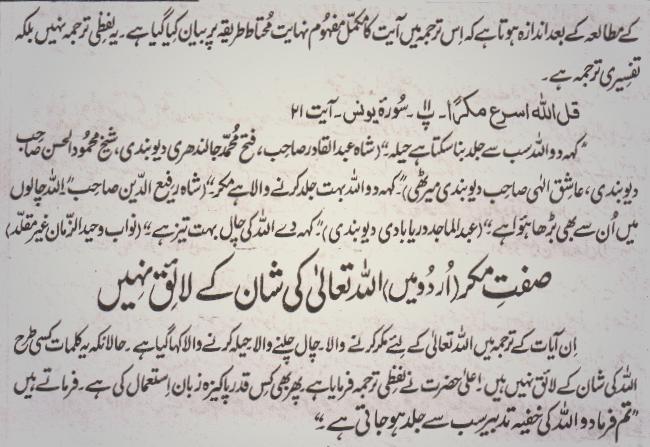 کے مطالعہ کے بعد اندازہ ہوتا ہے کہ اس ترجمہ میں آیت کا مکمل مفہوم نہایت محتاط طریقہ پر بیان کیا گیا ہے۔ یہ لفظی ترجمہ نہیں بلکہ
تفسیری ترجمہ ہے۔
قل اللہ اسرع مکرًا۔ پ ۱۱۔ سُورۂ یونس۔ آیت ۲۱
"کہہ دو اللہ سب سے جلد بنا سکتا ہے حیلہ۔" (شاہ عبدالقادر صاحب، فتح محمّد جالندھری دیوبندی، شیخ محمود الحسن صاحب
دیوبندی، عاشق الٰہی صاحب دیوبندی میرٹھی) "کہہ دو اللہ بہت جلد کرنے والا ہے مکر۔" (شاہ رفیع الدّین صاحب) "اللہ چالوں
میں اُن سے بھی بڑھا ہوا ہے۔" (عبدالماجد دریابادی دیوبندی) "کہہ دے اللہ کی چال بہت تیز ہے۔" (نواب وحید الزّمان غیر مقلّد)
صفتِ مکر (اُردو میں) اللہ تعالیٰ کی شان کے لائق نہیں
اِن آیات کے ترجمہ میں اللہ تعالیٰ کے لئے مکر کرنے والا۔ چال چلنے والا۔ حیلہ کرنے والا کہا گیا ہے۔ حالانکہ یہ کلمات کسی طرح
اللہ کی شان کے لائق نہیں ہیں۔ اعلیٰ حضرت نے لفظی ترجمہ فرمایا ہے۔ پھر بھی کِس قدر پاکیزہ زبان اِستعمال کی ہے۔ فرماتے ہیں
"تم فرما دو اللہ کی خفیہ تدبیر سب سے جلد ہو جاتی ہے۔"